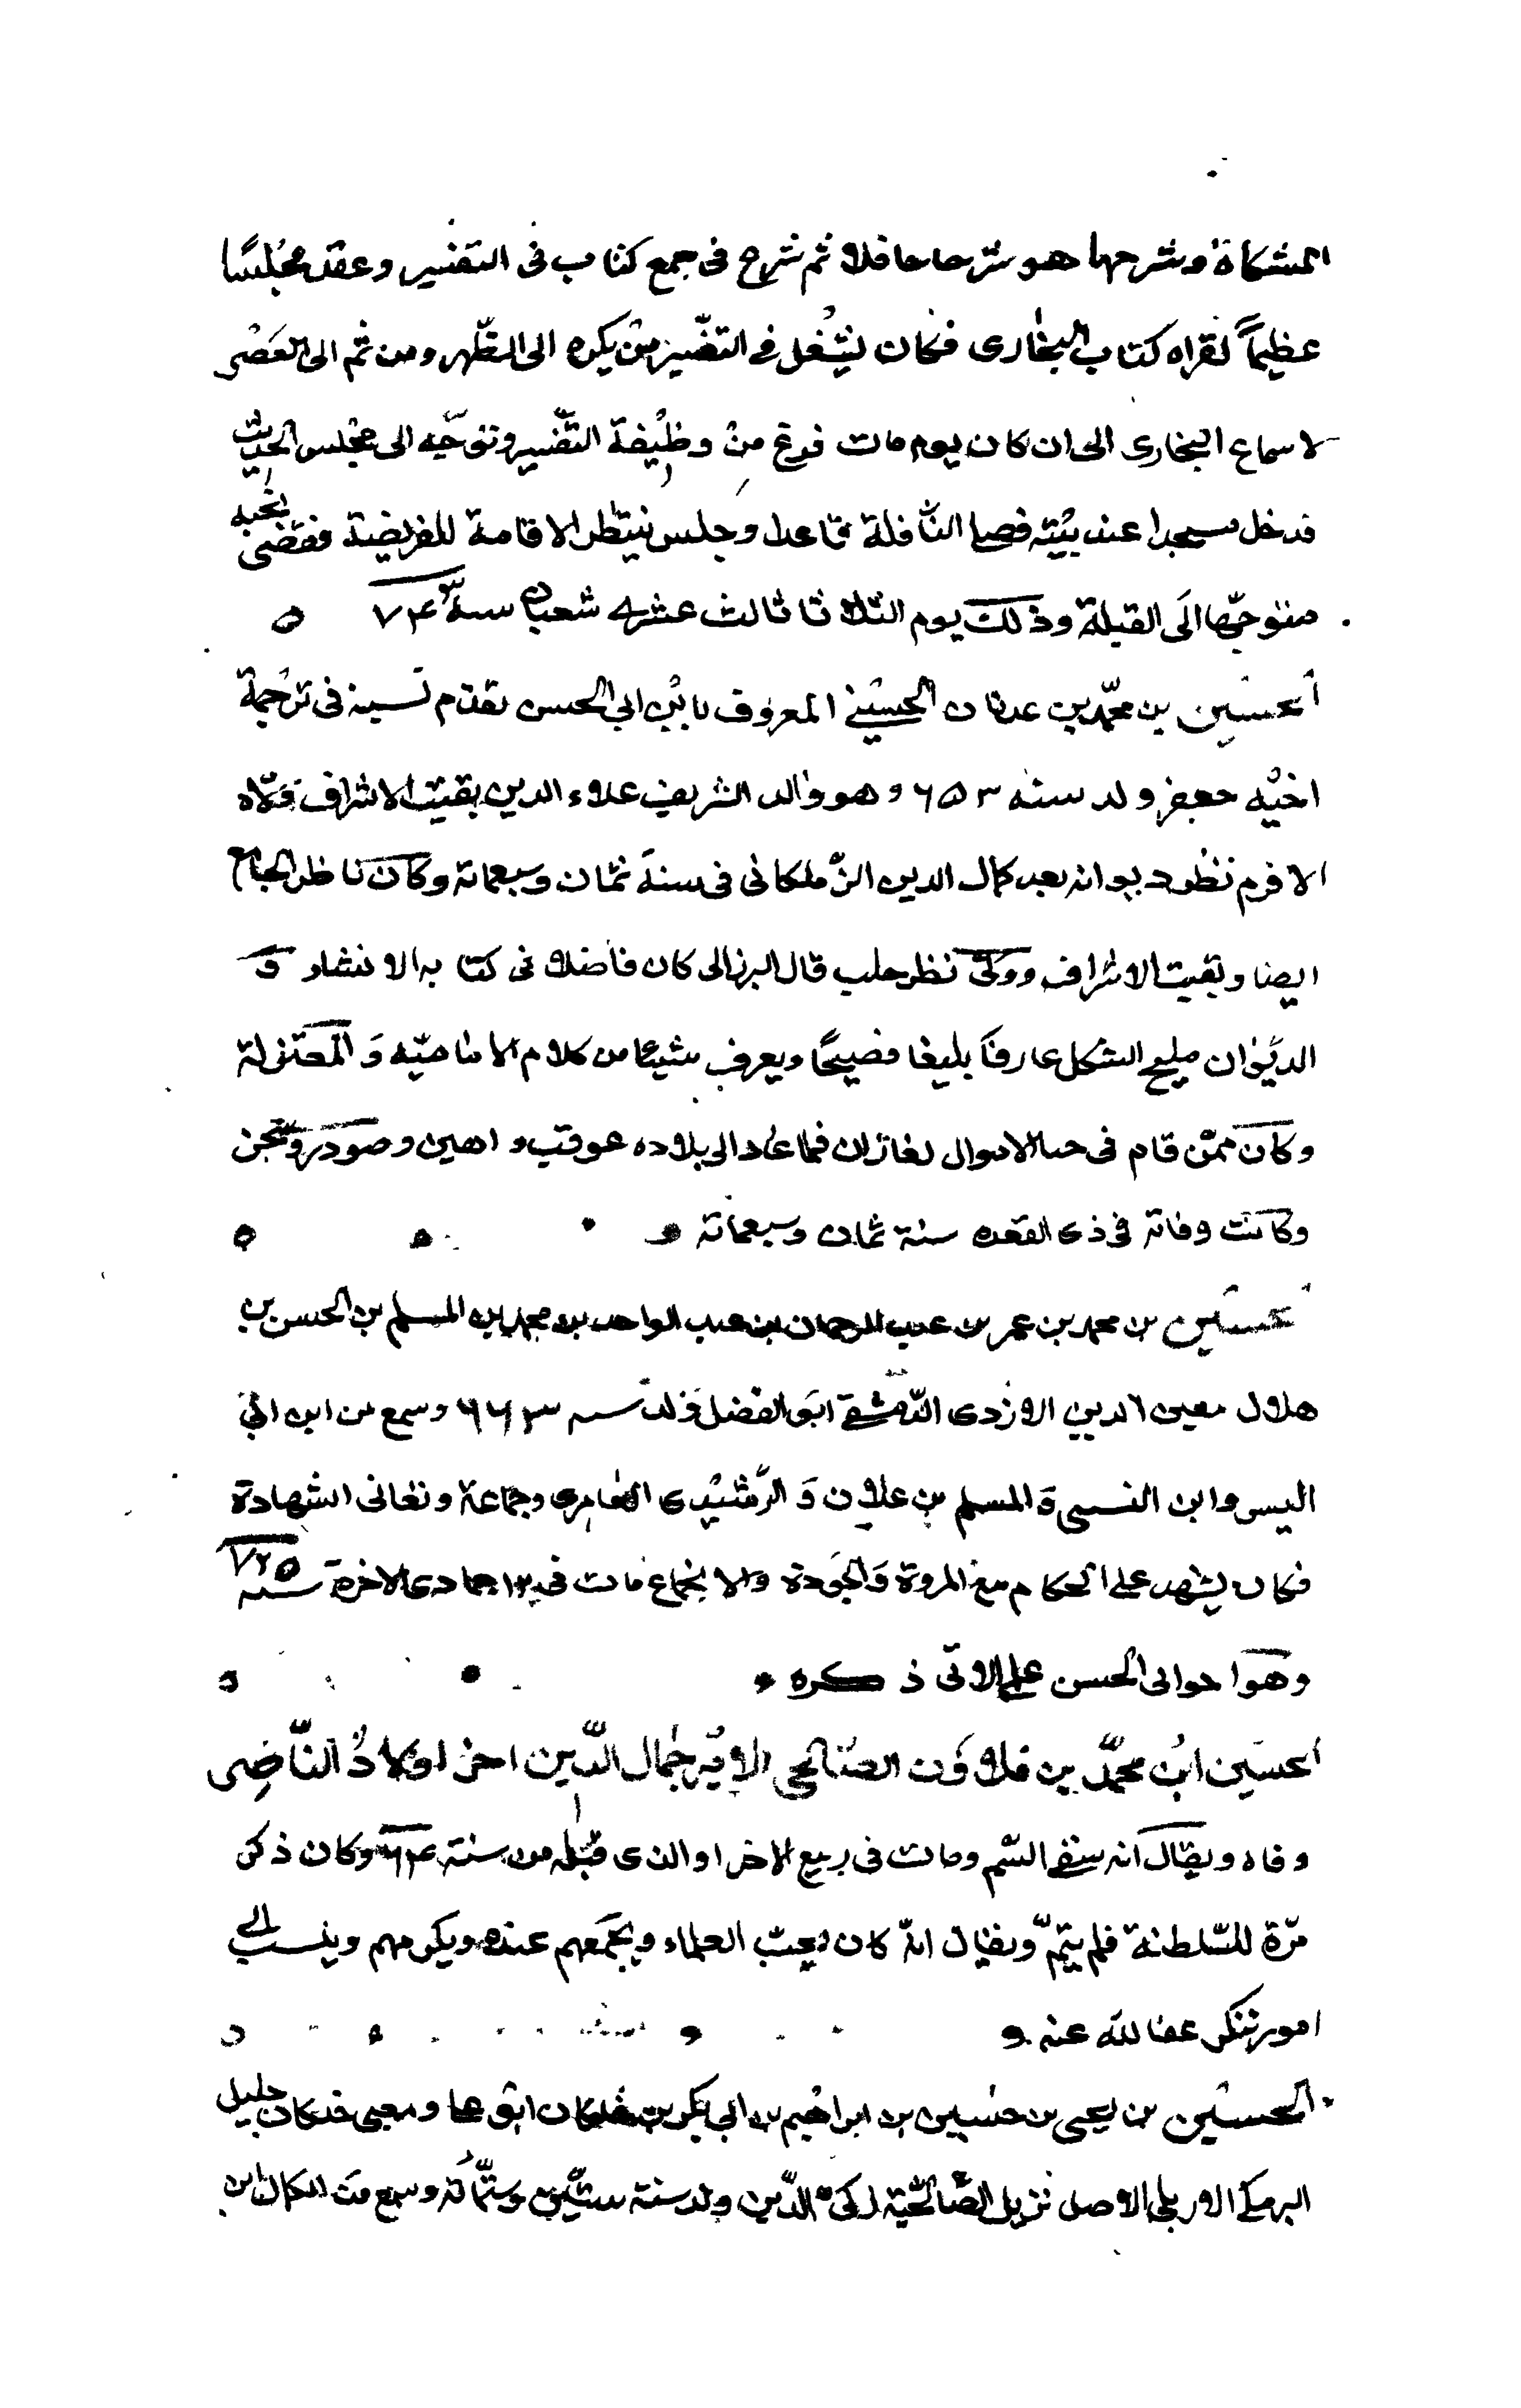 المشكاة وشرحها هو شرحا حافلا ثم شرع فى جمع كتاب فى التفسير وعقد مجلسًا
عظيماً لقراه كتاب البخارى فكان يشغل فى التفسير من بكره الى الظهر ومن ثم الى العصر
لاسماع البخارى الى ان كان يوم مات فرغ من وظيفة التفسير وتوجه الى مجلس الحديث
فدخل مسجدا عند بيته فصلى النافلة قاعدا وجلس ينتظر الاقامة للفريضة فقضى نحبه
متوجها الى القبلة وذلك يوم الثلاثا ثالث عشرى شعبان سنة ٧٤٣
الحسين بن محمد بن عدنان الحسينى المعروف بابن ابى الحسن تقدم نسبه فى ترجمة
اخيه جعفر ولد سنه ٦٥٣ وهو والد الشريف علاء الدين نقيب الاشراف ولاه
الافرم نظر ديوانه بعد كمال الدين الزملكانى فى سنة ثمان وسبعماتة وكان ناظر الجامع
ايضا ونقيب الاشراف وولى نظر حلب قال البرزالى كان فاضلا فى كتابه الانشاد و
الديوان مليح الشكل عارفاً بليغا فصيحًا ويعرف شيئا من كلام الامامية والمعتزلة
وكان ممن قام فى الاموال لغازان فلما عاد الى بلاده عوقب واهين وصودر وسجن
وكانت وفاته فى ذى القعده سنة ثمان وسبعماتة
حسين بن محمد بن عمر بن عبد الرحمان بن عبد الواحد بن محمد بن المسلم بن الحسن بن
هلال معين الدين الازدى الدمشقى ابو الفضل ولد سنه ٦٦٣ وسمع من ابن ابى
اليسر وابن النسبى والمسلم بن علان و الرشيدى العامرى وجماعة وتعانى الشهادة
فكان يشهد على الحكام مع المروة والجودة والانجماع مات فى ١٣ جمادى الاخرة سنه ٧٢٥
وهو اخو ابى الحسن على الاتى ذكره
الحسين ابن محمد بن قلاوون الصالحى الامير جمال الدين اخر اولاد الناصر
وفاه ويقال انه سقى السم ومات فى ربيع الاخر او الذى قبله من سنة ٧٦٤ وكان ذكر
مرة للسلطنة فلم يتم ويقال انه كان يحب العلماء ويجمعهم عنده ويكرمهم وينسب الى
امور تنكر عفا الله عنه
الحسين بن يحيى بن حسين بن ابراهيم بن ابى بكر بن خلكان ابو على ومعنى خلكان خليل
البرمكى الاربلى الاصل نزيل الصالحية زكى الدين ولد سنة ستين وستماتة وسمع من الكمال ابن